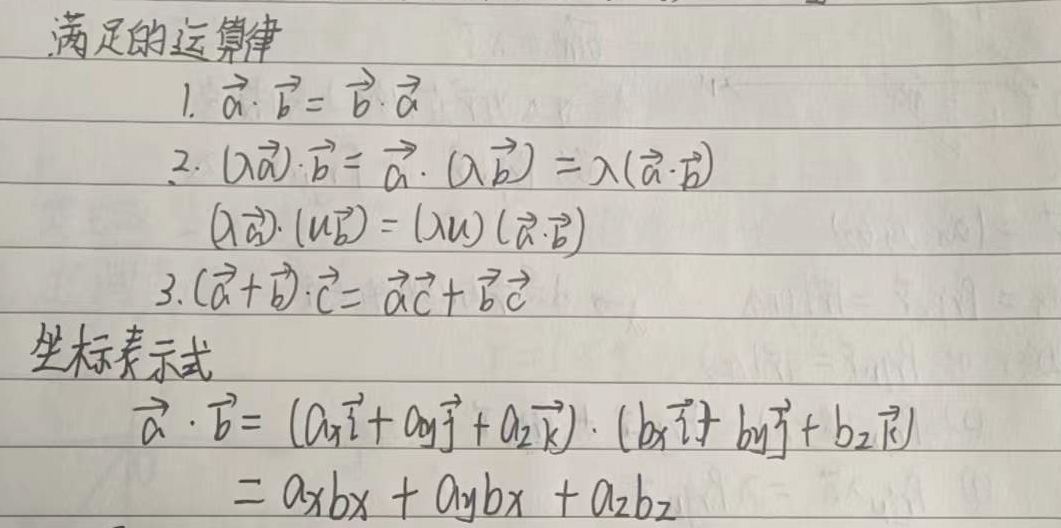 满足的运算律
1. $\vec{a}\cdot\vec{b}=\vec{b}\cdot\vec{a}$
2. $(\lambda\vec{a})\cdot\vec{b}=\vec{a}\cdot(\lambda\vec{b})=\lambda(\vec{a}\cdot\vec{b})$
$(\lambda\vec{a})\cdot(u\vec{b})=(\lambda u)(\vec{a}\cdot\vec{b})$
3. $(\vec{a}+\vec{b})\cdot\vec{c}=\vec{a}\vec{c}+\vec{b}\vec{c}$
坐标表示式
$\vec{a}\cdot\vec{b}=(a_x\vec{i}+a_y\vec{j}+a_z\vec{k})\cdot(b_x\vec{i}+b_y\vec{j}+b_z\vec{k})$
$=a_xb_x+a_yb_x+a_zb_z$